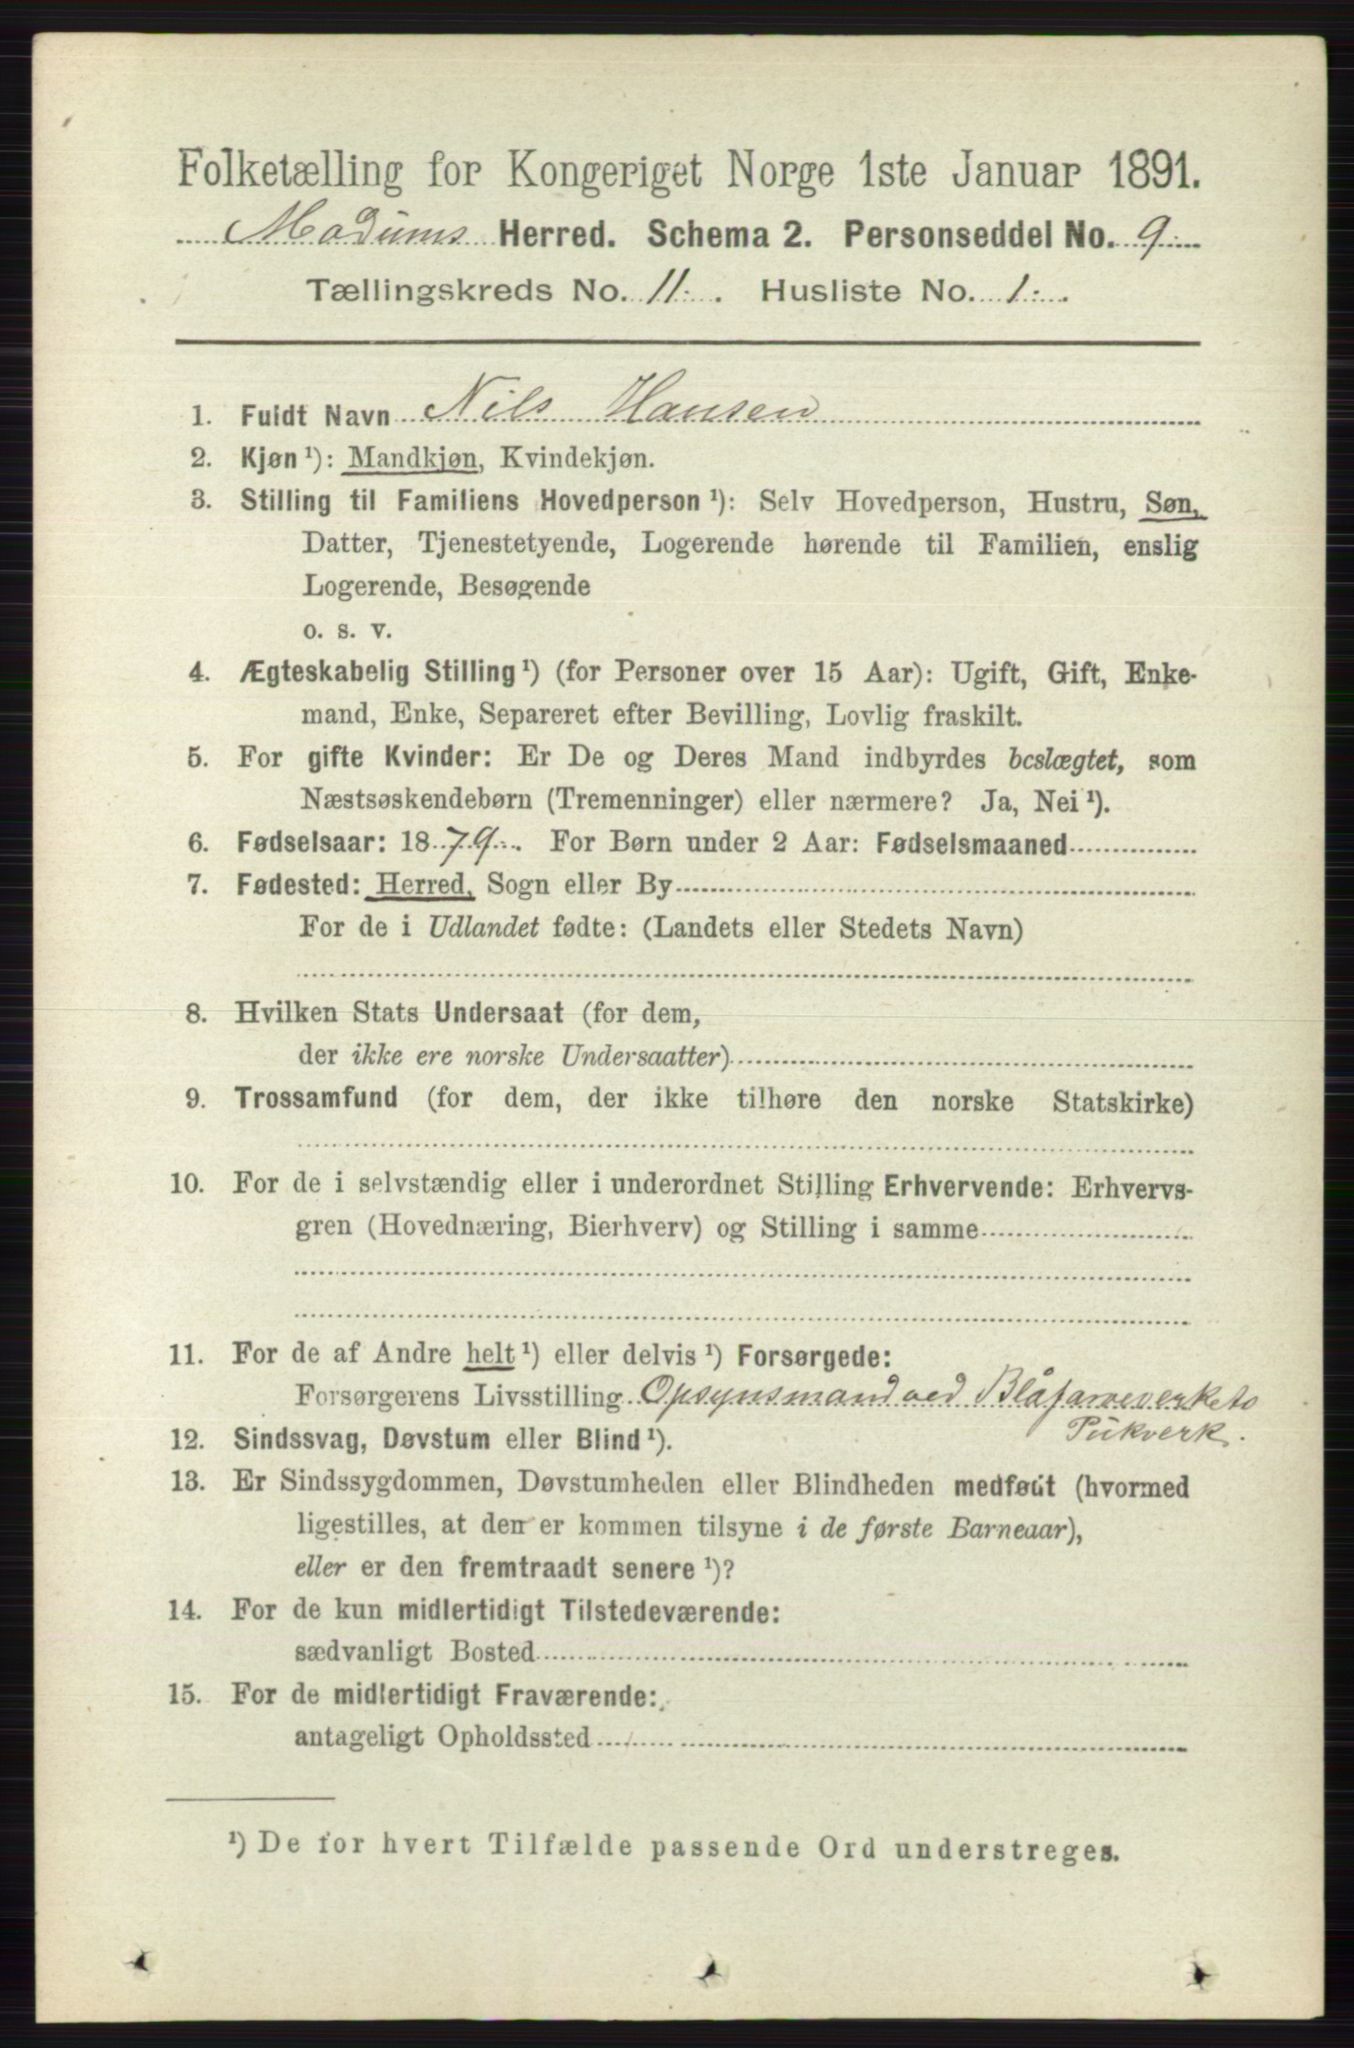 Folketælling for Kongeriget Norge 1ste Januar 1891.
Modums Herred. Schema 2. Personseddel No. 9
Tællingskreds No. 11. Husliste No. 1.
1. Fuldt Navn Nils Hansen
2. Kjøn ¹): Mandkjøn, Kvindekjøn.
3. Stilling til Familiens Hovedperson ¹): Selv Hovedperson, Hustru, Søn,
Datter, Tjenestetyende, Logerende hørende til Familien, enslig
Logerende, Besøgende
o. s. v.
4. Ægteskabelig Stilling ¹) (for Personer over 15 Aar): Ugift, Gift, Enke-
mand, Enke, Separeret efter Bevilling, Lovlig fraskilt.
5. For gifte Kvinder: Er De og Deres Mand indbyrdes beslægtet, som
Næstsøskendebørn (Tremenninger) eller nærmere? Ja, Nei ¹).
6. Fødselsaar: 1879. For Børn under 2 Aar: Fødselsmaaned
7. Fødested: Herred, Sogn eller By
For de i Udlandet fødte: (Landets eller Stedets Navn)
8. Hvilken Stats Undersaat (for dem,
der ikke ere norske Undersaatter)
9. Trossamfund (for dem, der ikke tilhøre den norske Statskirke)
10. For de i selvstændig eller i underordnet Stilling Erhvervende: Erhvervs-
gren (Hovednæring, Bierhverv) og Stilling i samme
11. For de af Andre helt ¹) eller delvis ¹) Forsørgede:
Forsørgerens Livsstilling Opsynsmand ved Blåfarveverkets
Pukverk.
12. Sindssvag, Døvstum eller Blind ¹).
13. Er Sindssygdommen, Døvstumheden eller Blindheden medfødt (hvormed
ligestilles, at den er kommen tilsyne i de første Barneaar),
eller er den fremtraadt senere ¹)?
14. For de kun midlertidigt Tilstedeværende:
sædvanligt Bosted
15. For de midlertidigt Fraværende:
antageligt Opholdssted
¹) De for hvert Tilfælde passende Ord understreges.